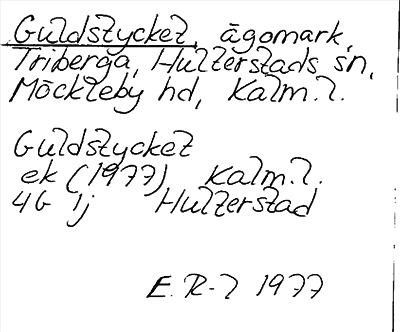 Guldstycket, ägomark,
Triberga, Hulterstads sn,
Möckleby hd, Kalm. l.
Guldstycket
ek (1977) Kalm. l.
4G 1j Hulterstad
E. R-l 1977